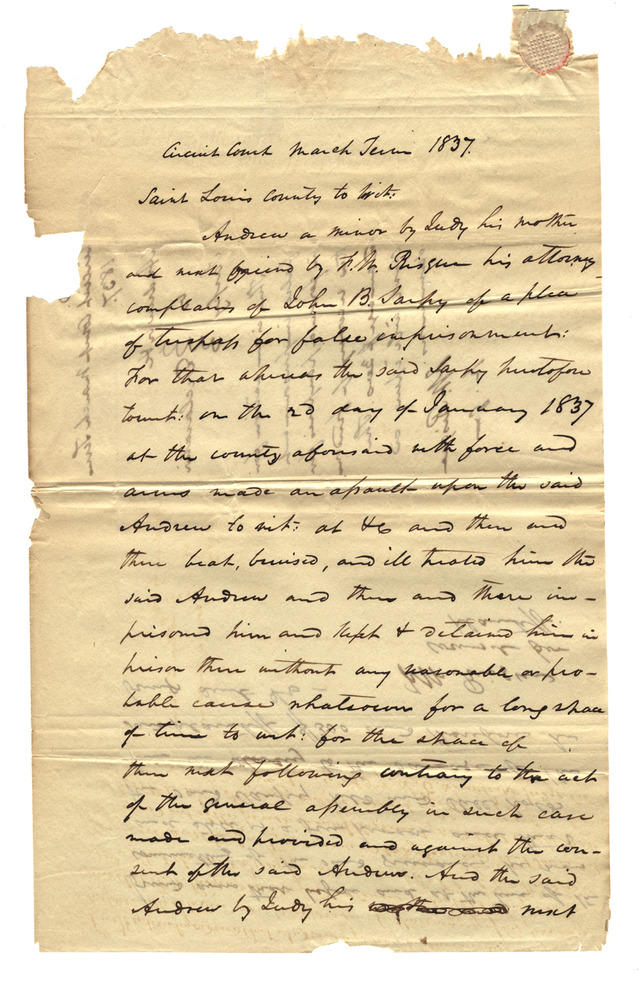 Circuit Court March Term 1837.
Saint Louis County to wit:
Andrew a minor by Judy his mother
and next friend by F. W. Risque his attorney
complains of John B. Sarpy of a plea
of trespass for false imprisonment:
For that whereas the said Sarpy heretofore
towit: on the 2d day of January 1837
at the county aforesaid with force and
arms made an assault upon the said
Andrew to wit: at &c and then and
there beat, bruised, and ill treated him the
said Andrew and then and there im-
prisoned him and kept & detained him in
prison there without any reasonable or pro-
bable cause whatsoever for a long space
of time to wit: for the space of
then next following contrary to the act
of the general assembly in such case
made and provided and against the con-
sent of the said Andrew. And the said
Andrew by Judy his next